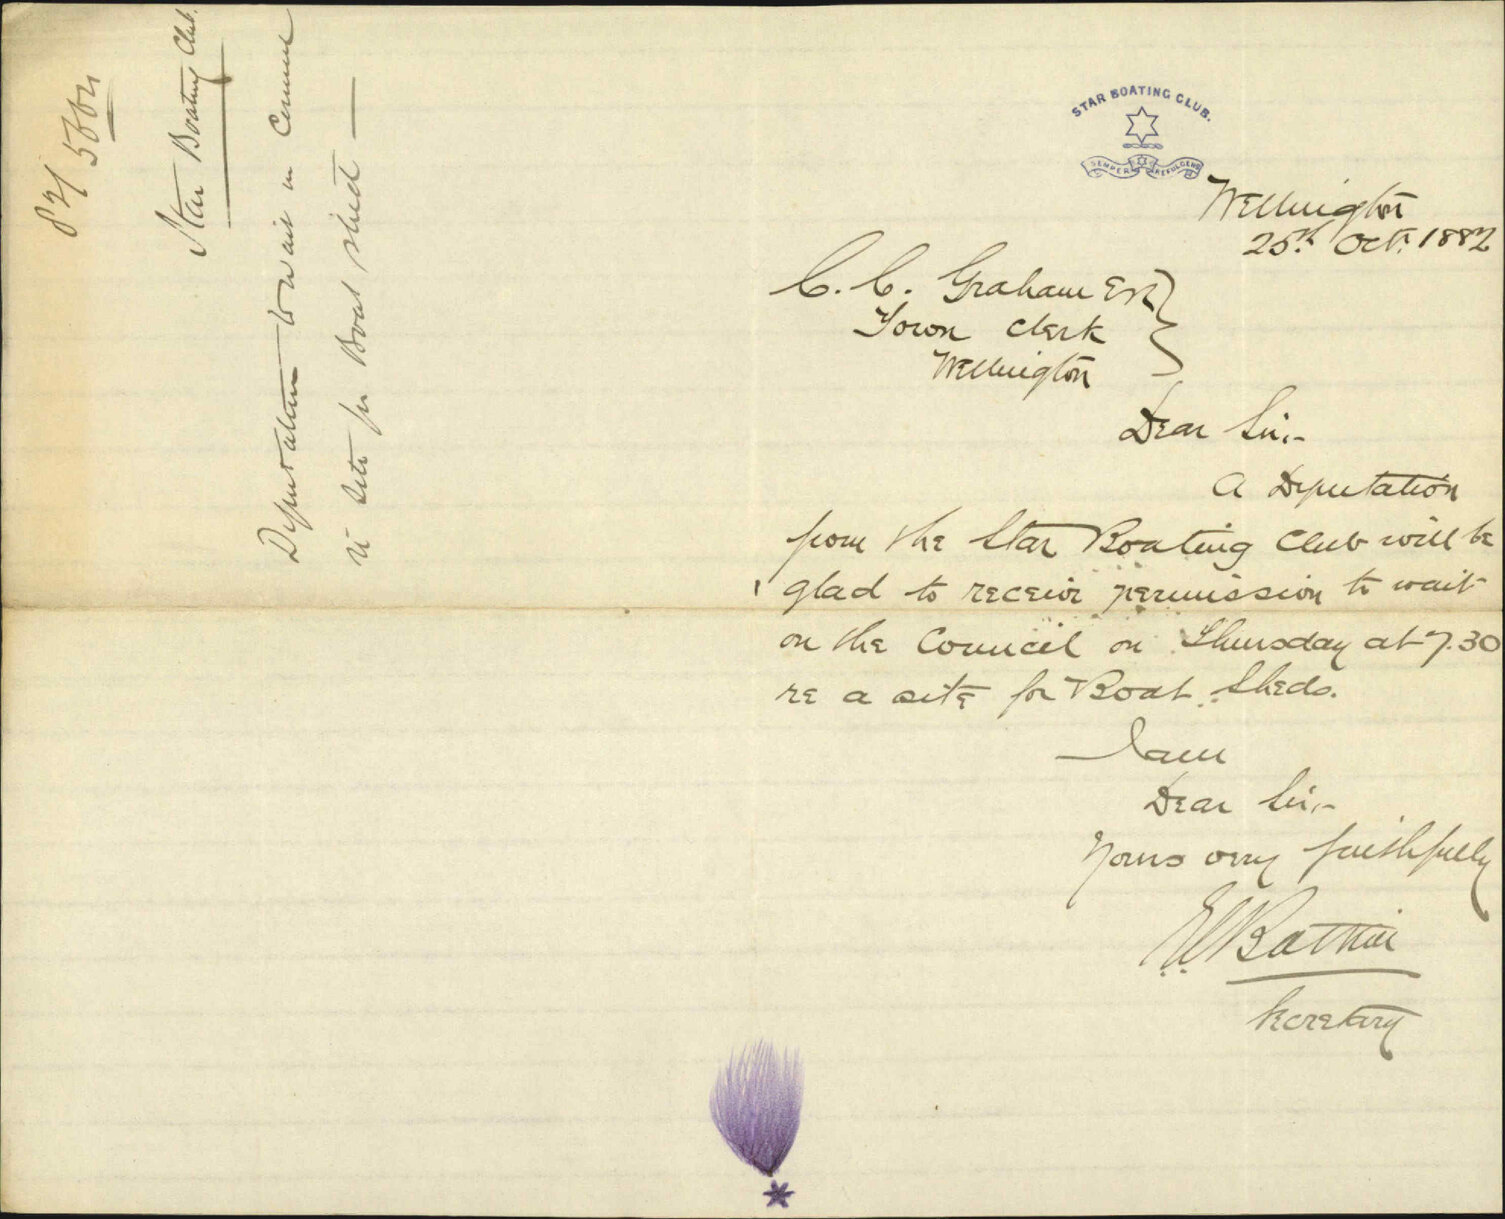 STAR BOATING CLUB.
SEMPER REFULGENS
Wellington
25th Oct. 1882
C. C. Graham Esq
Town Clerk
Wellington
Dear Sir,-
A Deputation
from the Star Boating Club will be
glad to receive permission to wait
on the Council on Thursday at 7.30
re a site for Boat Sheds.
I am
Dear Sir,-
Yours very faithfully
Secretary
82/
Star Boating Club.
Deputation to wait on Council
re site for Boat shed